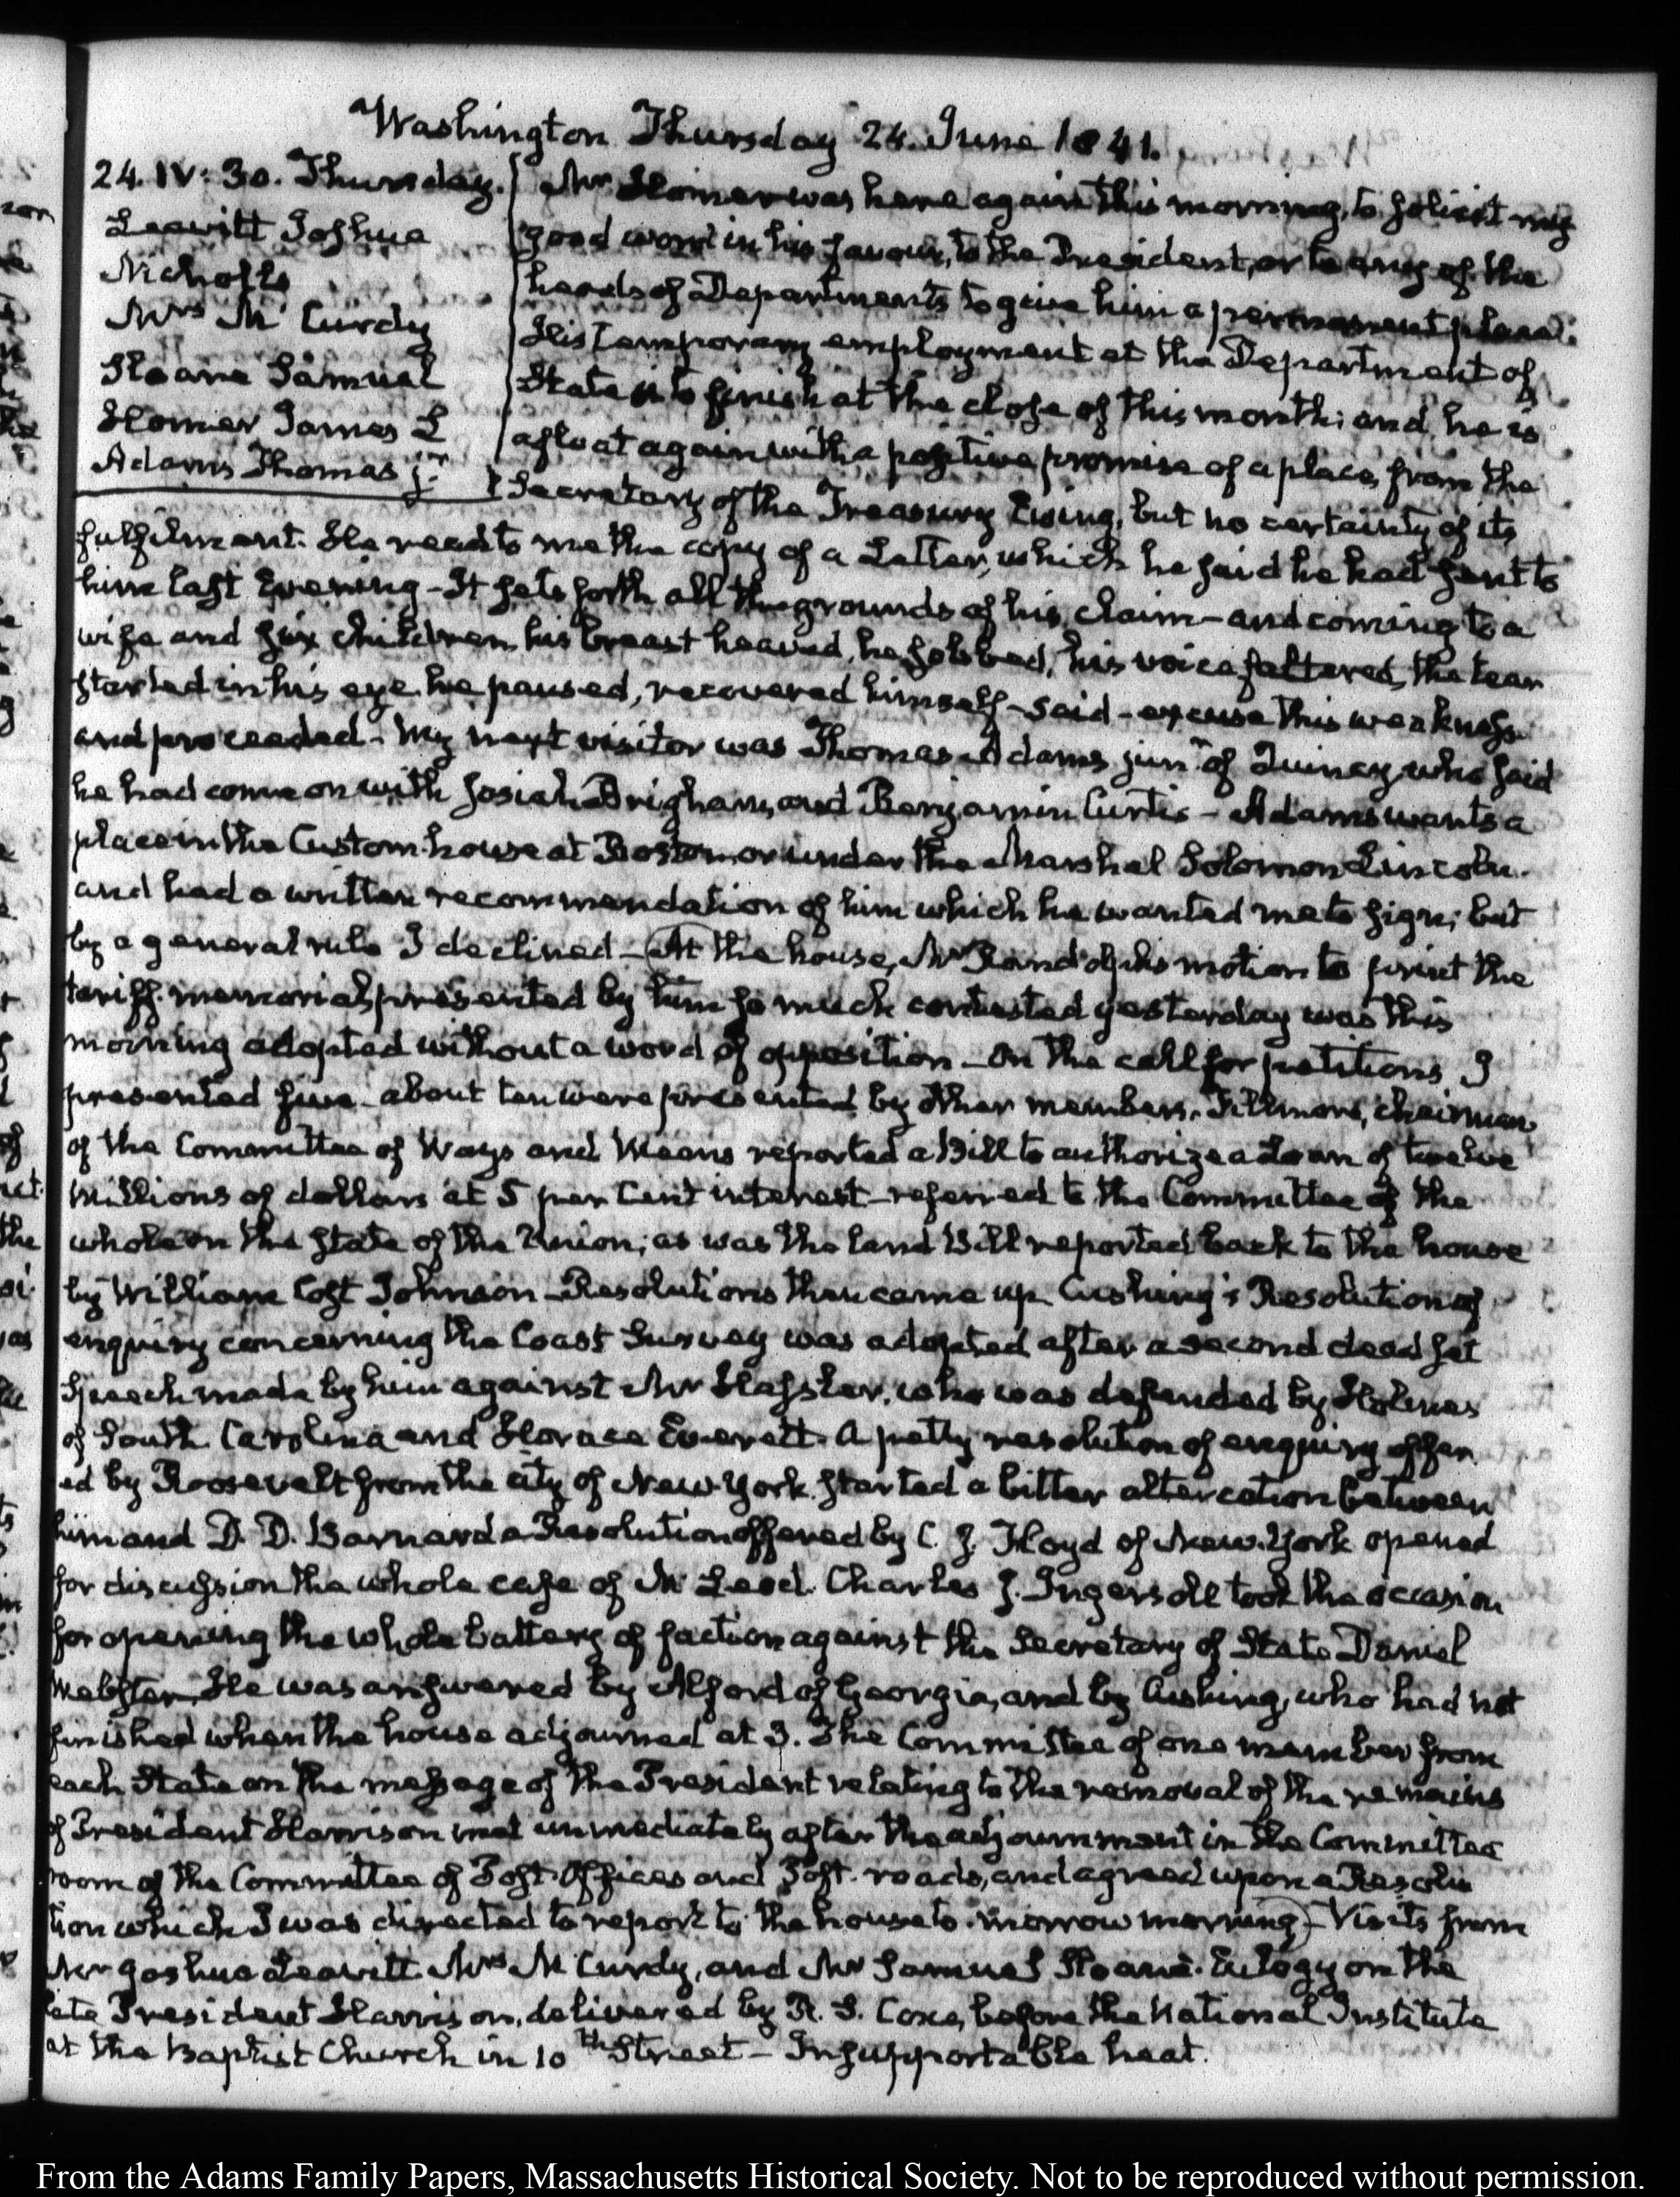 Washington Thursday 24. June 1841.
24. IV: 30. Thursday.
Leavitt Joshua
Nicholls
Mrs McCurdy
Sloane Samuel
Homer James L
Adams Thomas jr.
Mr Homer was here again this morning, to solicit my
good word in his favour, to the President, or to any of the
heads of Departments to give him a permanent place.
His temporary employment at the Department of
State is to finish at the close of this month; and he is
afloat again with a positive promise of a place, from the
Secretary of the Treasury Ewing, but no certainty of its
fulfilment. He read to me the copy of a Letter, which he said he had sent to
him last Evening - It sets forth all the grounds of his claim - and coming to a
wife and six children, his breast heaved, he sobbed, his voice faltered, the tear
started in his eye he paused, recovered himself - said - excuse this weakness
and proceeded - My next visitor was Thomas Adams junr. of Quincy who said
he had come on with Josiah Brigham, and Benjamin Curtis - Adams wants a
place in the Custom house at Boston or under the Marshal Solomon Lincoln.
and had a written recommendation of him which he wanted me to sign; but
by a general rule I declined - At the house, Mr Randolph's motion to print the
tariff memorial, presented by him so much contested yesterday was this
morning adopted without a word of opposition - On the call for petitions I
presented five - about ten were presented by other members. Fillmore, chairman
of the Committee of Ways and Means reported a Bill to authorize a Loan of twelve
Millions of dollars at 5 per Cent interest - referred to the Committee of the
whole on the state of the Union; as was the land Bill reported back to the house
by William Cost Johnson - Resolutions then came up Cushing's Resolution of
enquiry concerning the Coast Survey was adopted after a second dead set
Speech made by him against Mr Hassler, who was defended by Holmes
of South Carolina and Horace Everett. A petty resolution of enquiry offer
ed by Roosevelt from the city of New York started a bitter altercation between
him and D. D. Barnard a Resolution offered by C. J. Floyd of New-York opened
for discussion the whole case of McLeod. Charles J. Ingersoll took the occasion
for opening the whole battery of faction against the Secretary of State Daniel
Webster. He was answered by Alford of Georgia, and by Cushing, who had not
finished when the house adjourned at 3. The Committee of one member from
each State on the message of the President relating to the removal of the remains
of President Harrison met immediately after the adjournment in the Committee
room of the Committee of Post Offices and Post-roads, and agreed upon a Resolu
tion which I was directed to report to the house to-morrow morning - Visits from
Mr Joshua Leavitt. Mrs McCurdy, and Mr Samuel Sloane. Eulogy on the
late President Harrison, delivered by R. S. Coxe, before the National Institute
at the Baptist Church in 10th Street - Insupportable heat.
From the Adams Family Papers, Massachusetts Historical Society. Not to be reproduced without permission.